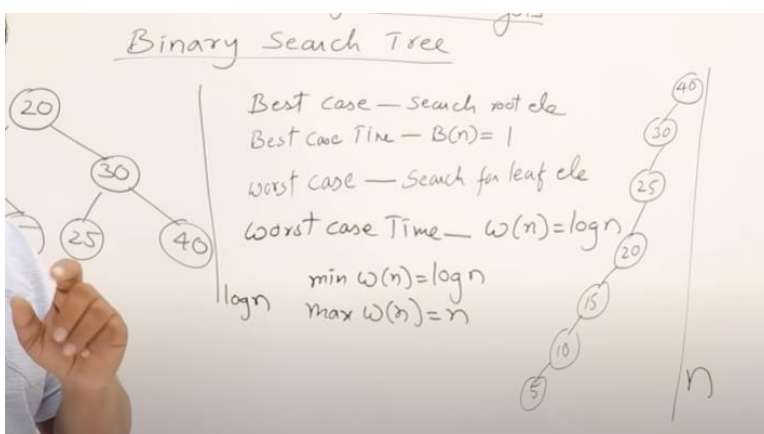 Binary Search Tree
20
30
25
40
logn
Best case — Search root ele
Best Case Time — B(n) = 1
worst case — Search for leaf ele
worst case Time — w(n) = logn
min w(n) = logn
max w(n) = n
40
30
25
20
15
10
5
n